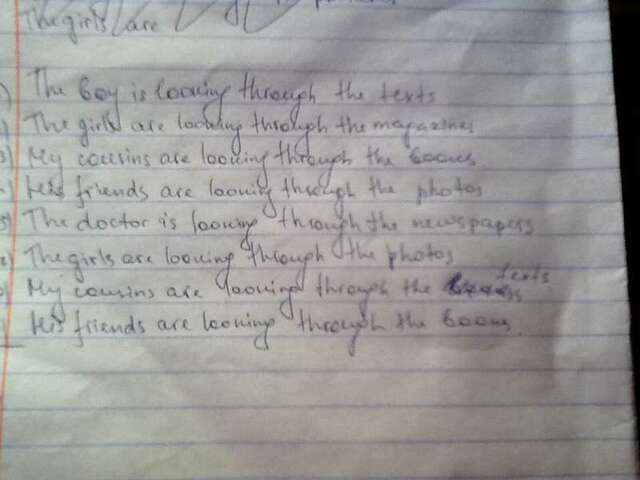 The girls are
The boy is looking through the texts
The girls are looking through the magazines
3) My cousins are looking through the books
His friends are looking through the photos
5) The doctor is looking through the newspapers
The girls are looking through the photos
My cousins are looking through the texts
His friends are looking through the books.